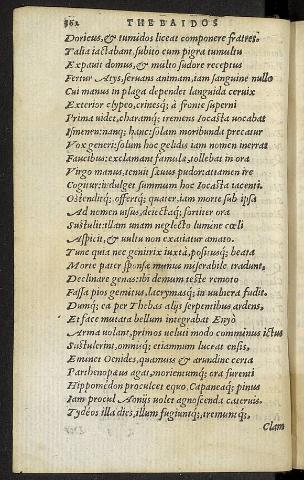 362 THEBAIDOS
Doricus, & tumidos liceat componere fratres.
Talia iactabant, subito cum pigra tumultu
Expauit domus, & multo sudore receptus
Fertur Atys, seruans animam, iam sanguine nullo
Cui manus in plaga dependet languida ceruix
Exterior clypeo, crinesq; à fronte superni
Prima uidet, charamq; tremens Iocasta uocabat
Ismenen: nanq; hanc: solam moribunda precatur
Vox generi: solum hoc gelidis iam nomen inerrat
Faucibus: exclamant famulæ, tollebat in ora
Virgo manus, tenuit sæuus pudor: attamen ire
Cogitur: indulget summum hoc Iocasta iacenti.
Ostenditq; offertq; quater, iam morte sub ipsa
Ad nomen uisus, deiectaq; fortiter ora
Sustulit: illam unam neglecto lumine cœli
Aspicit, & uultu non exatiatur amato.
Tunc quia nec genitrix iuxta, positusq; beata
Morte pater sponsæ munus miserabile tradunt,
Declinare genas: ibi demum teste remoto
Fassa pios gemitus, lacrymasq; in uulnera fudit.
Dumq; ea per Thebas alijs serpentibus ardens,
Et face mutata bellum integrabat Enyò
Arma uolant, primos ueluti modo comminus ictus
Sustulerint, omnisq; etiamnum luceat ensis,
Eminet Oenides, quamuis & arundine certa
Parthenopæus agat, morientumq; ora furenti
Hippomedon proculcet equo, Capaneaq; pinus
Iam procul Aonijs uolet agnoscenda cateruis.
Tydeos illa dies, illum fugiuntq;, tremuntq;,
Clam